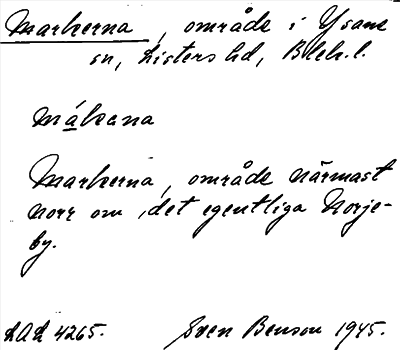 Markerna, område i Ysane
sn, Listers hd, Blek.l.
Mákana
Markerna, område närmast
norr om det egentliga Norje-
by.
LAL 4265. Sven Benson 1945.